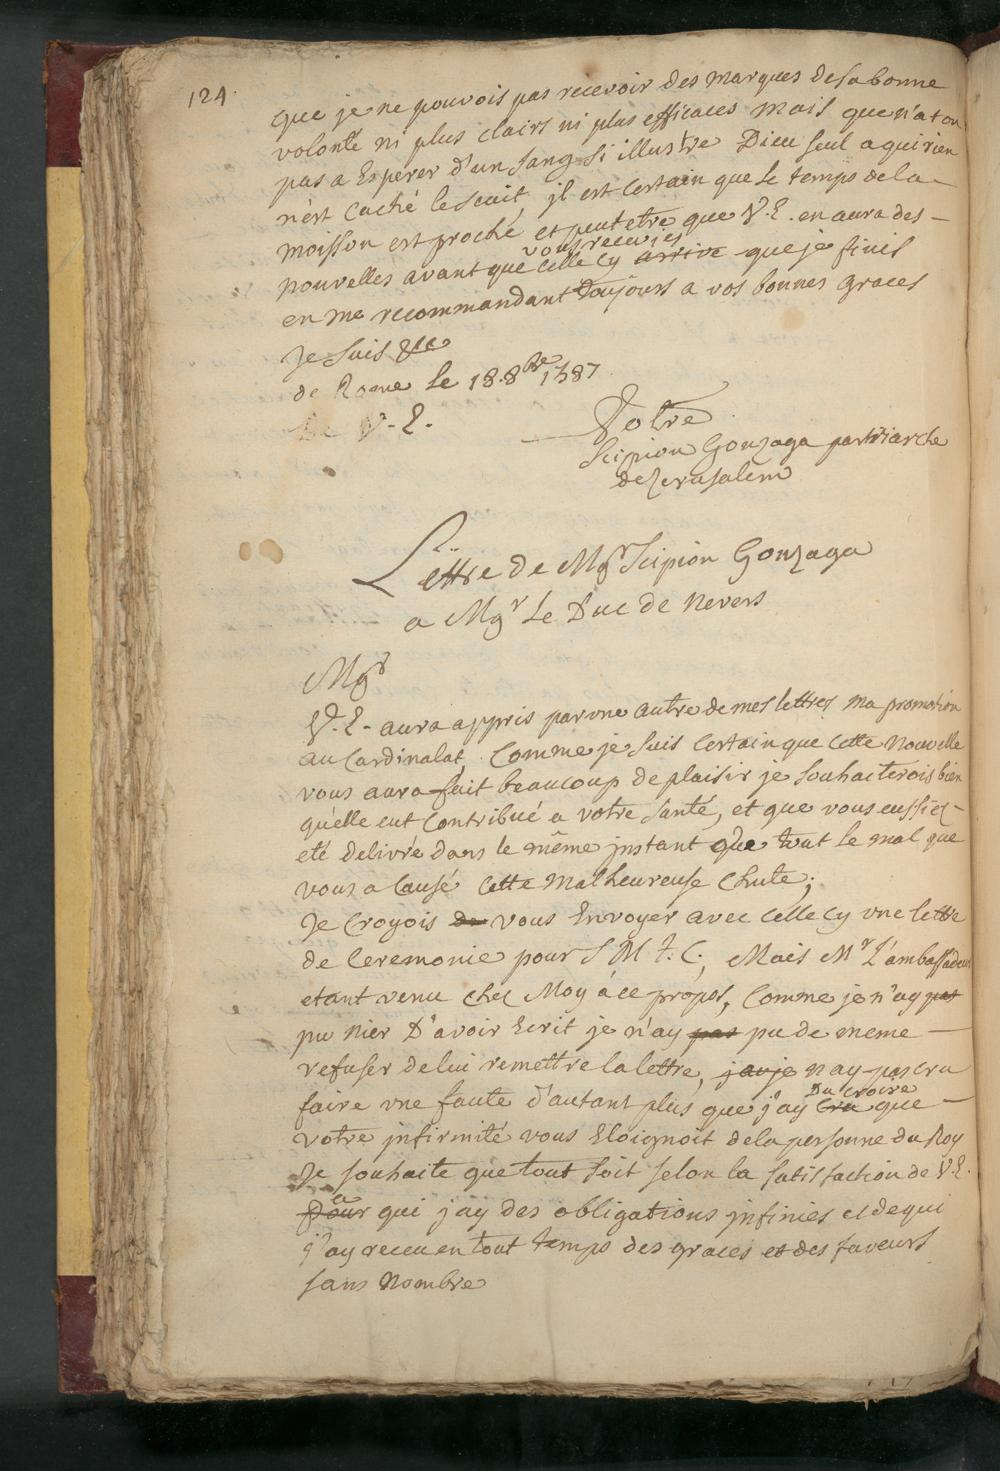 124.
que je ne pouvois pas recevoir des marques de sa bonne
volonté ni plus clairs ni plus efficaces mais que n'at on
pas a Esperer d'un sang si illustre Dieu seul a qui rien
n'est caché le scait, il est certain que le temps de la
moisson est proche et peutetre que V. E. en aura des
nouvelles avant que vous receviés celle cy arrive que je finis
en me recommandant toujours a vos bonnes graces
Je suis &ca
de Rome le 18. 8bre 1587
De V. E.
Votre
Scipion Gonzaga partriarche
de Jerusalem
Lettre de Mgr Scipion Gonzaga
a Mgr Le Duc de Nevers
Mgr
V. E. aura appris par vne autre de mes lettres ma promotion
au Cardinalat, Comme je suis certain que cette nouvelle
vous aura fait beaucoup de plaisir je souhaiterois bien
qu'elle eut contribué a votre santé, et que vous eussiez
eté delivré dans le même jnstant que tout le mal que
vous a causé cette malheureuse chute;
Je croyois de vous Envoyer avec celle cy vne lettre
de Ceremonie pour S M t. C., Mais Mr L'ambassadeur
etant venu chez Moy à ce propos, Comme je n'ay pas
pu nier D'avoir Ecrit je n'ay pas pu de meme
refuser de lui remettre la lettre, je n'ay pas cru
faire vne faute d'autant plus que j'ay cru Du croire que
votre jnfirmité vous Eloignoit de la personne du Roy
Je souhaite que tout soit selon la satisfaction de V. E.
Pour a qui j'ay des obligations jnfinies et de qui
j'ay receu en tout temps des graces et des faveurs
sans nombre